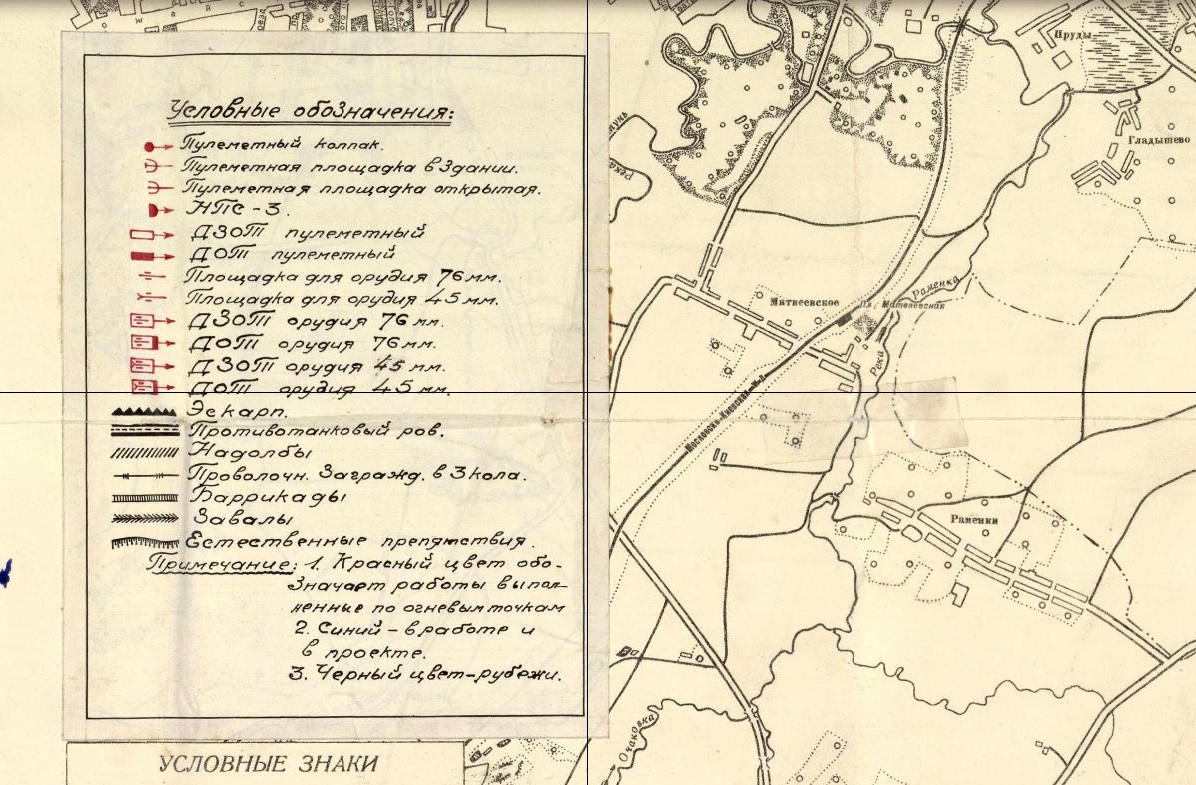 Условные обозначения:
Пулеметный колпак.
Пулеметная площадка в здании.
Пулеметная площадка открытая.
НПС-3.
ДЗОТ пулеметный
ДОТ пулеметный
Площадка для орудия 76 мм.
Площадка для орудия 45 мм.
ДЗОТ орудия 76 мм.
ДОТ орудия 76 мм.
ДЗОТ орудия 45 мм.
ДОТ орудия 45 мм.
Эскарп.
Противотанковый ров.
Надолбы
Проволочн. Загражд. в 3 кола.
Баррикады
Завалы
Естественные препятствия.
Примечание: 1. Красный цвет обо-
значает работы выпол-
ненные по огневым точкам
2. Синий - в работе и
в проекте.
3. Черный цвет-рубежи.
УСЛОВНЫЕ ЗНАКИ
Пруды
Гладышево
Река
Матвеевское
Пл. Матвеевская
Раменка
Река
Московско-Киевская
Раменки
Очаковка